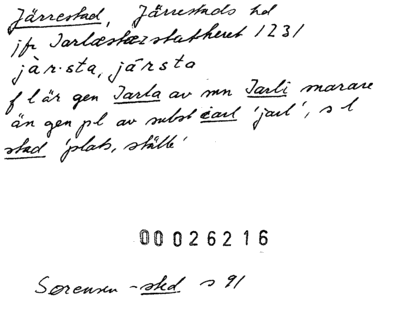 Järrestad, Järrestads hd
jfr Iarlæstæzstathheret 1231
jàr·sta, jársta
f l är gen Iarla av mn Iarli snarare
än gen pl av subst iarl 'jarl', s l
stad 'plats, ställe'
00026216
Sørensen -sted s 91